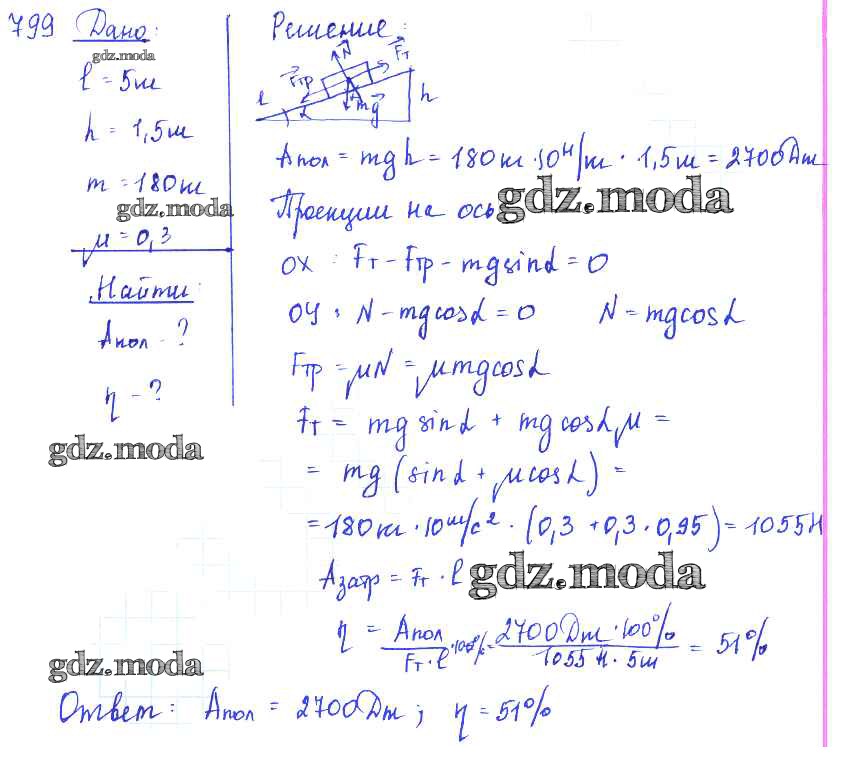 799 Дано:
gdz.moda
l = 5м
h = 1,5м
m = 180кг
gdz.moda
μ = 0,3
Найти:
Aпол - ?
η - ?
gdz.moda
Решение:
N Fт
Fтр
l α mg h
Aпол = mgh = 180кг · 10 Н/кг · 1,5м = 2700Дж
Проекции на ось gdz.moda
OX : Fт - Fтр - mgsinα = 0
OY : N - mgcosα = 0 N = mgcosα
Fтр = μN = μmgcosα
Fт = mg sinα + mg cosα μ =
= mg (sinα + μcosα) =
= 180кг · 10 м/с² · (0,3 + 0,3 · 0,95) = 1055Н
Aзатр = Fт · l gdz.moda
η = Aпол / Fт · l · 100% = 2700Дж · 100% / 1055 Н · 5м = 51%
gdz.moda
Ответ: Aпол = 2700Дж; η = 51%